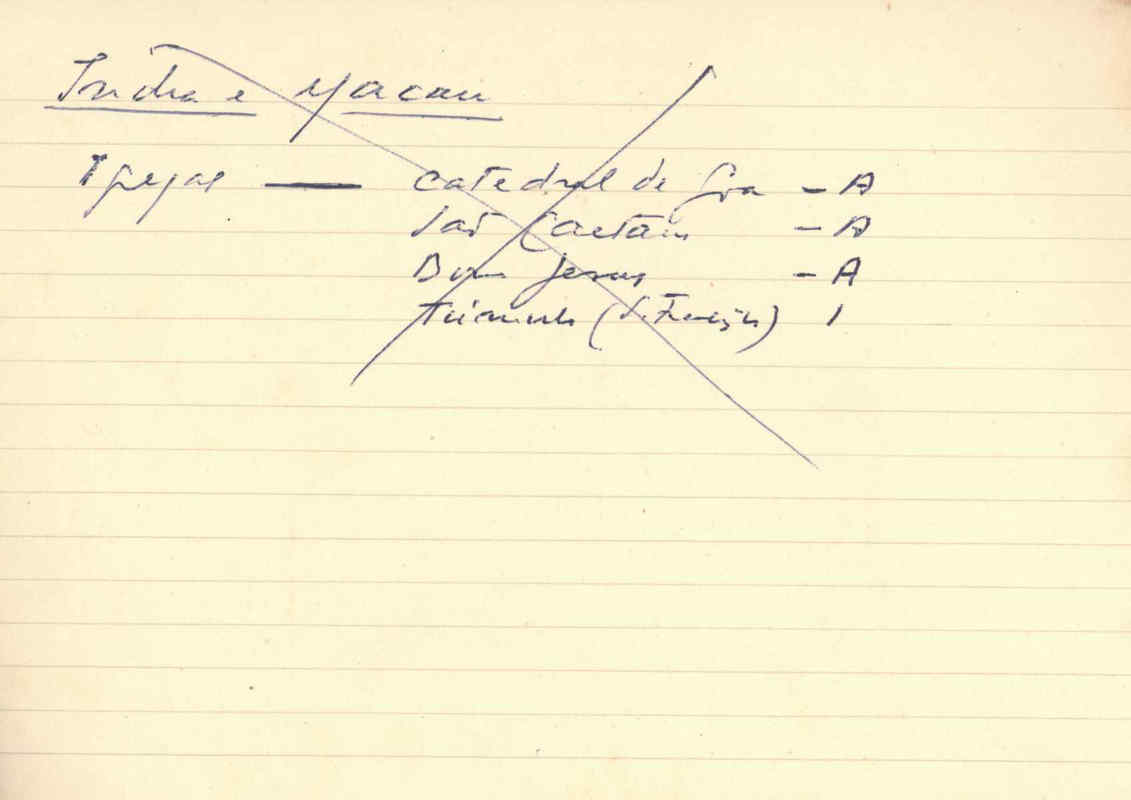 India e Macau
Igrejas — Catedral de Goa – A
São Caetano – A
Bom Jesus – A
Túmulo (S. Francisco) 1